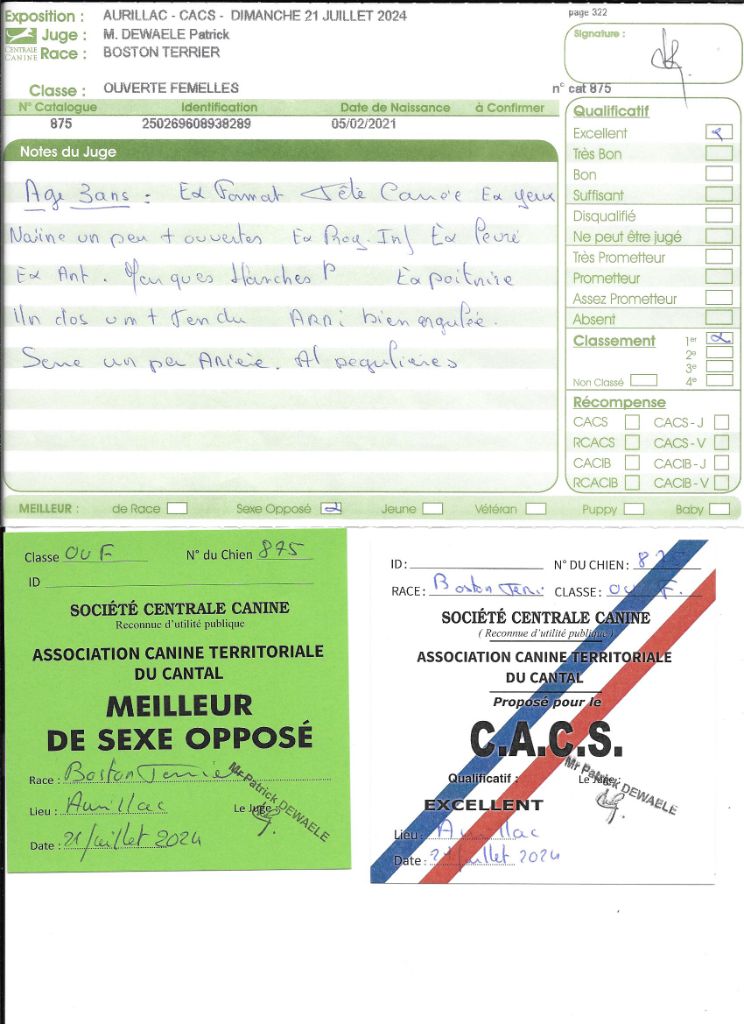 Exposition : AURILLAC - CACS - DIMANCHE 21 JUILLET 2024
page 322
Juge : M. DEWAELE Patrick
CENTRALE CANINE
Race : BOSTON TERRIER
Signature :
Classe : OUVERTE FEMELLES
n° cat 875
N° Catalogue Identification Date de Naissance à Confirmer
875 250269608938289 05/02/2021
Notes du Juge
Age 3ans : Ex Format Tête Carrée Ex yeux
Narine un peu + ouvertes Ex Prog. Inf Ex
Ex Ant. Hanches Ex poitrine
Un dos un + Tendu bien angulée.
Serre un peu Al régulières
Qualificatif
Excellent
Très Bon
Bon
Suffisant
Disqualifié
Ne peut être jugé
Très Prometteur
Prometteur
Assez Prometteur
Absent
Classement 1er
2e
3e
Non Classé 4e
Récompense
CACS CACS - J
RCACS CACS - V
CACIB CACIB - J
RCACIB CACIB - V
MEILLEUR : de Race Sexe Opposé Jeune Vétéran Puppy Baby
Classe OUF N° du Chien 875
ID
SOCIÉTÉ CENTRALE CANINE
Reconnue d'utilité publique
ASSOCIATION CANINE TERRITORIALE
DU CANTAL
MEILLEUR
DE SEXE OPPOSÉ
Race : Boston Terrier
Lieu : Aurillac Le Juge :
Mr Patrick DEWAELE
Date : 21 Juillet 2024
ID : N° DU CHIEN : 875
RACE : Boston Terri CLASSE : OUF.
SOCIÉTÉ CENTRALE CANINE
( Reconnue d'utilité publique )
ASSOCIATION CANINE TERRITORIALE
DU CANTAL
Proposé pour le
C.A.C.S.
Qualificatif : Le Juge
Mr Patrick DEWAELE
EXCELLENT
Lieu : Aurillac
Date : 21 Juillet 2024